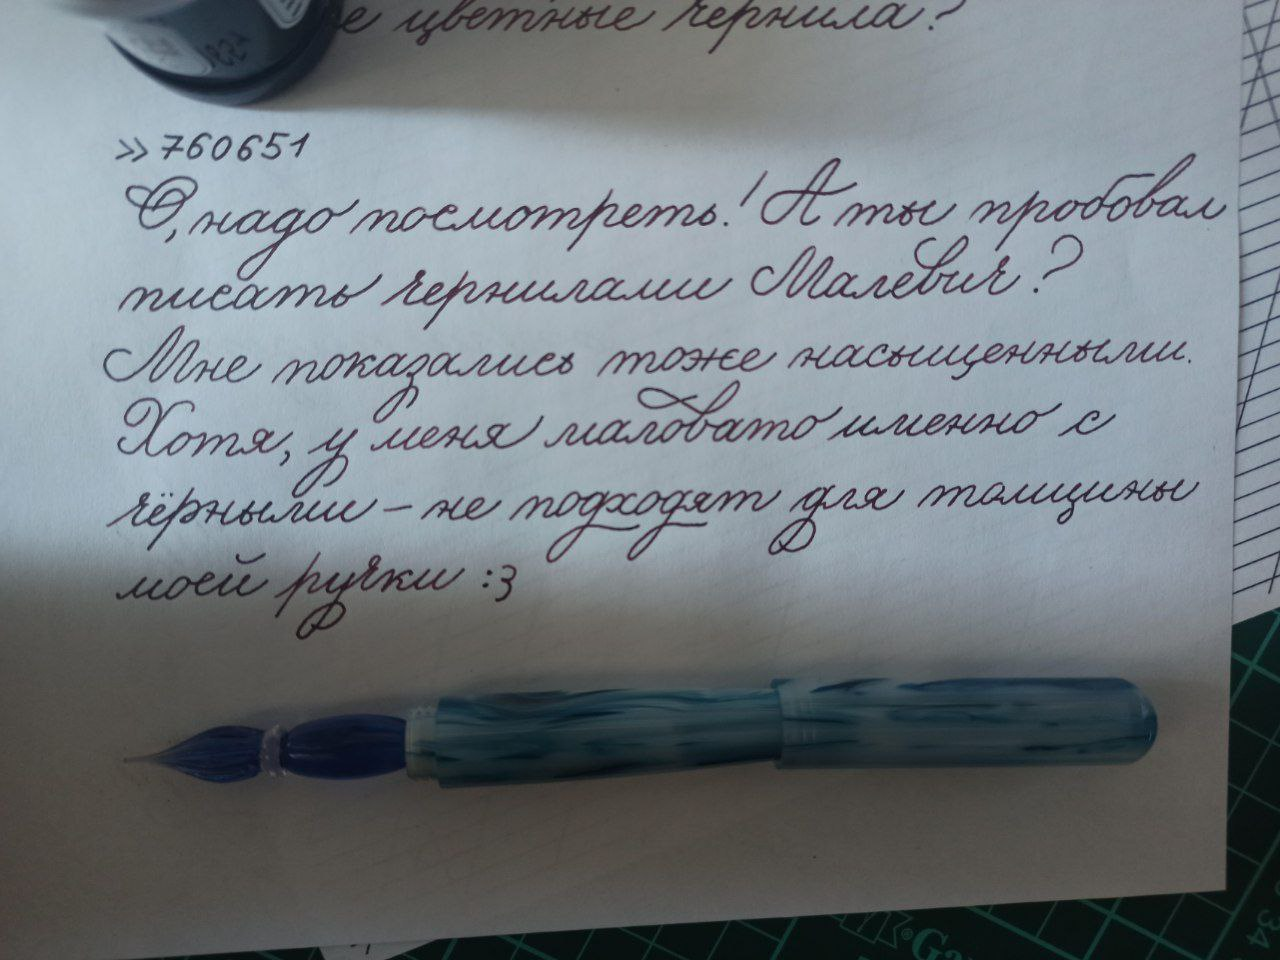 е цветные чернила?
>>760651
О, надо посмотреть! А ты пробовал
писать чернилами Малевич?
Мне показались тоже насыщенными.
Хотя, у меня маловато именно с
чёрными – не подходят для толщины
моей ручки :3
34